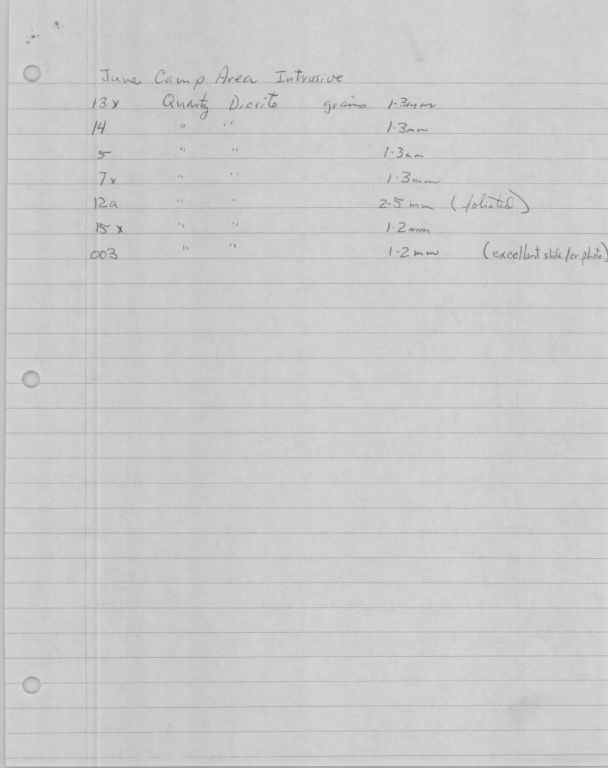 June Camp Area Intrusive
13x Quartz Diorite grains 1-3mm
14 " " 1-3mm
5 " " 1-3mm
7x " " 1-3mm
12a " " 2-5 mm (foliated)
15x " " 1-2mm
003 " " 1-2mm (excellent slide for photo)